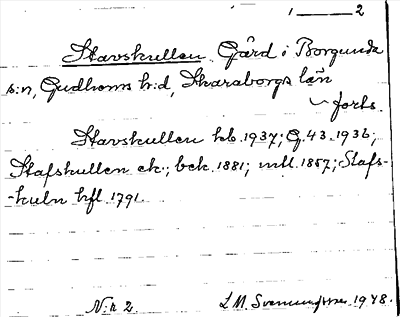 1 ——— 2
Stavskullen. Gård i Borgunda
s:n, Gudhems h:d, Skaraborgs län
forts.
Stavskullen kb. 1937; G. 43. 1936;
Stafskullen ek.; bek. 1881; mtl. 1857; Stafs-
-kuln hfl. 1791.
N:r 2. L.M. 1948.